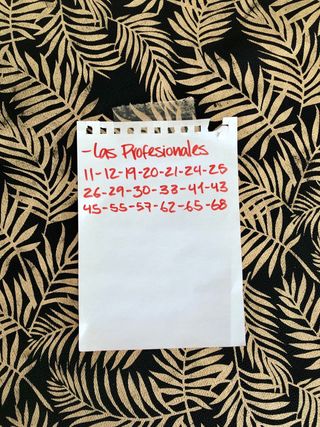 -Los Profesionales
11-12-19-20-21-24-25
26-29-30-33-41-43
45-55-57-62-65-68